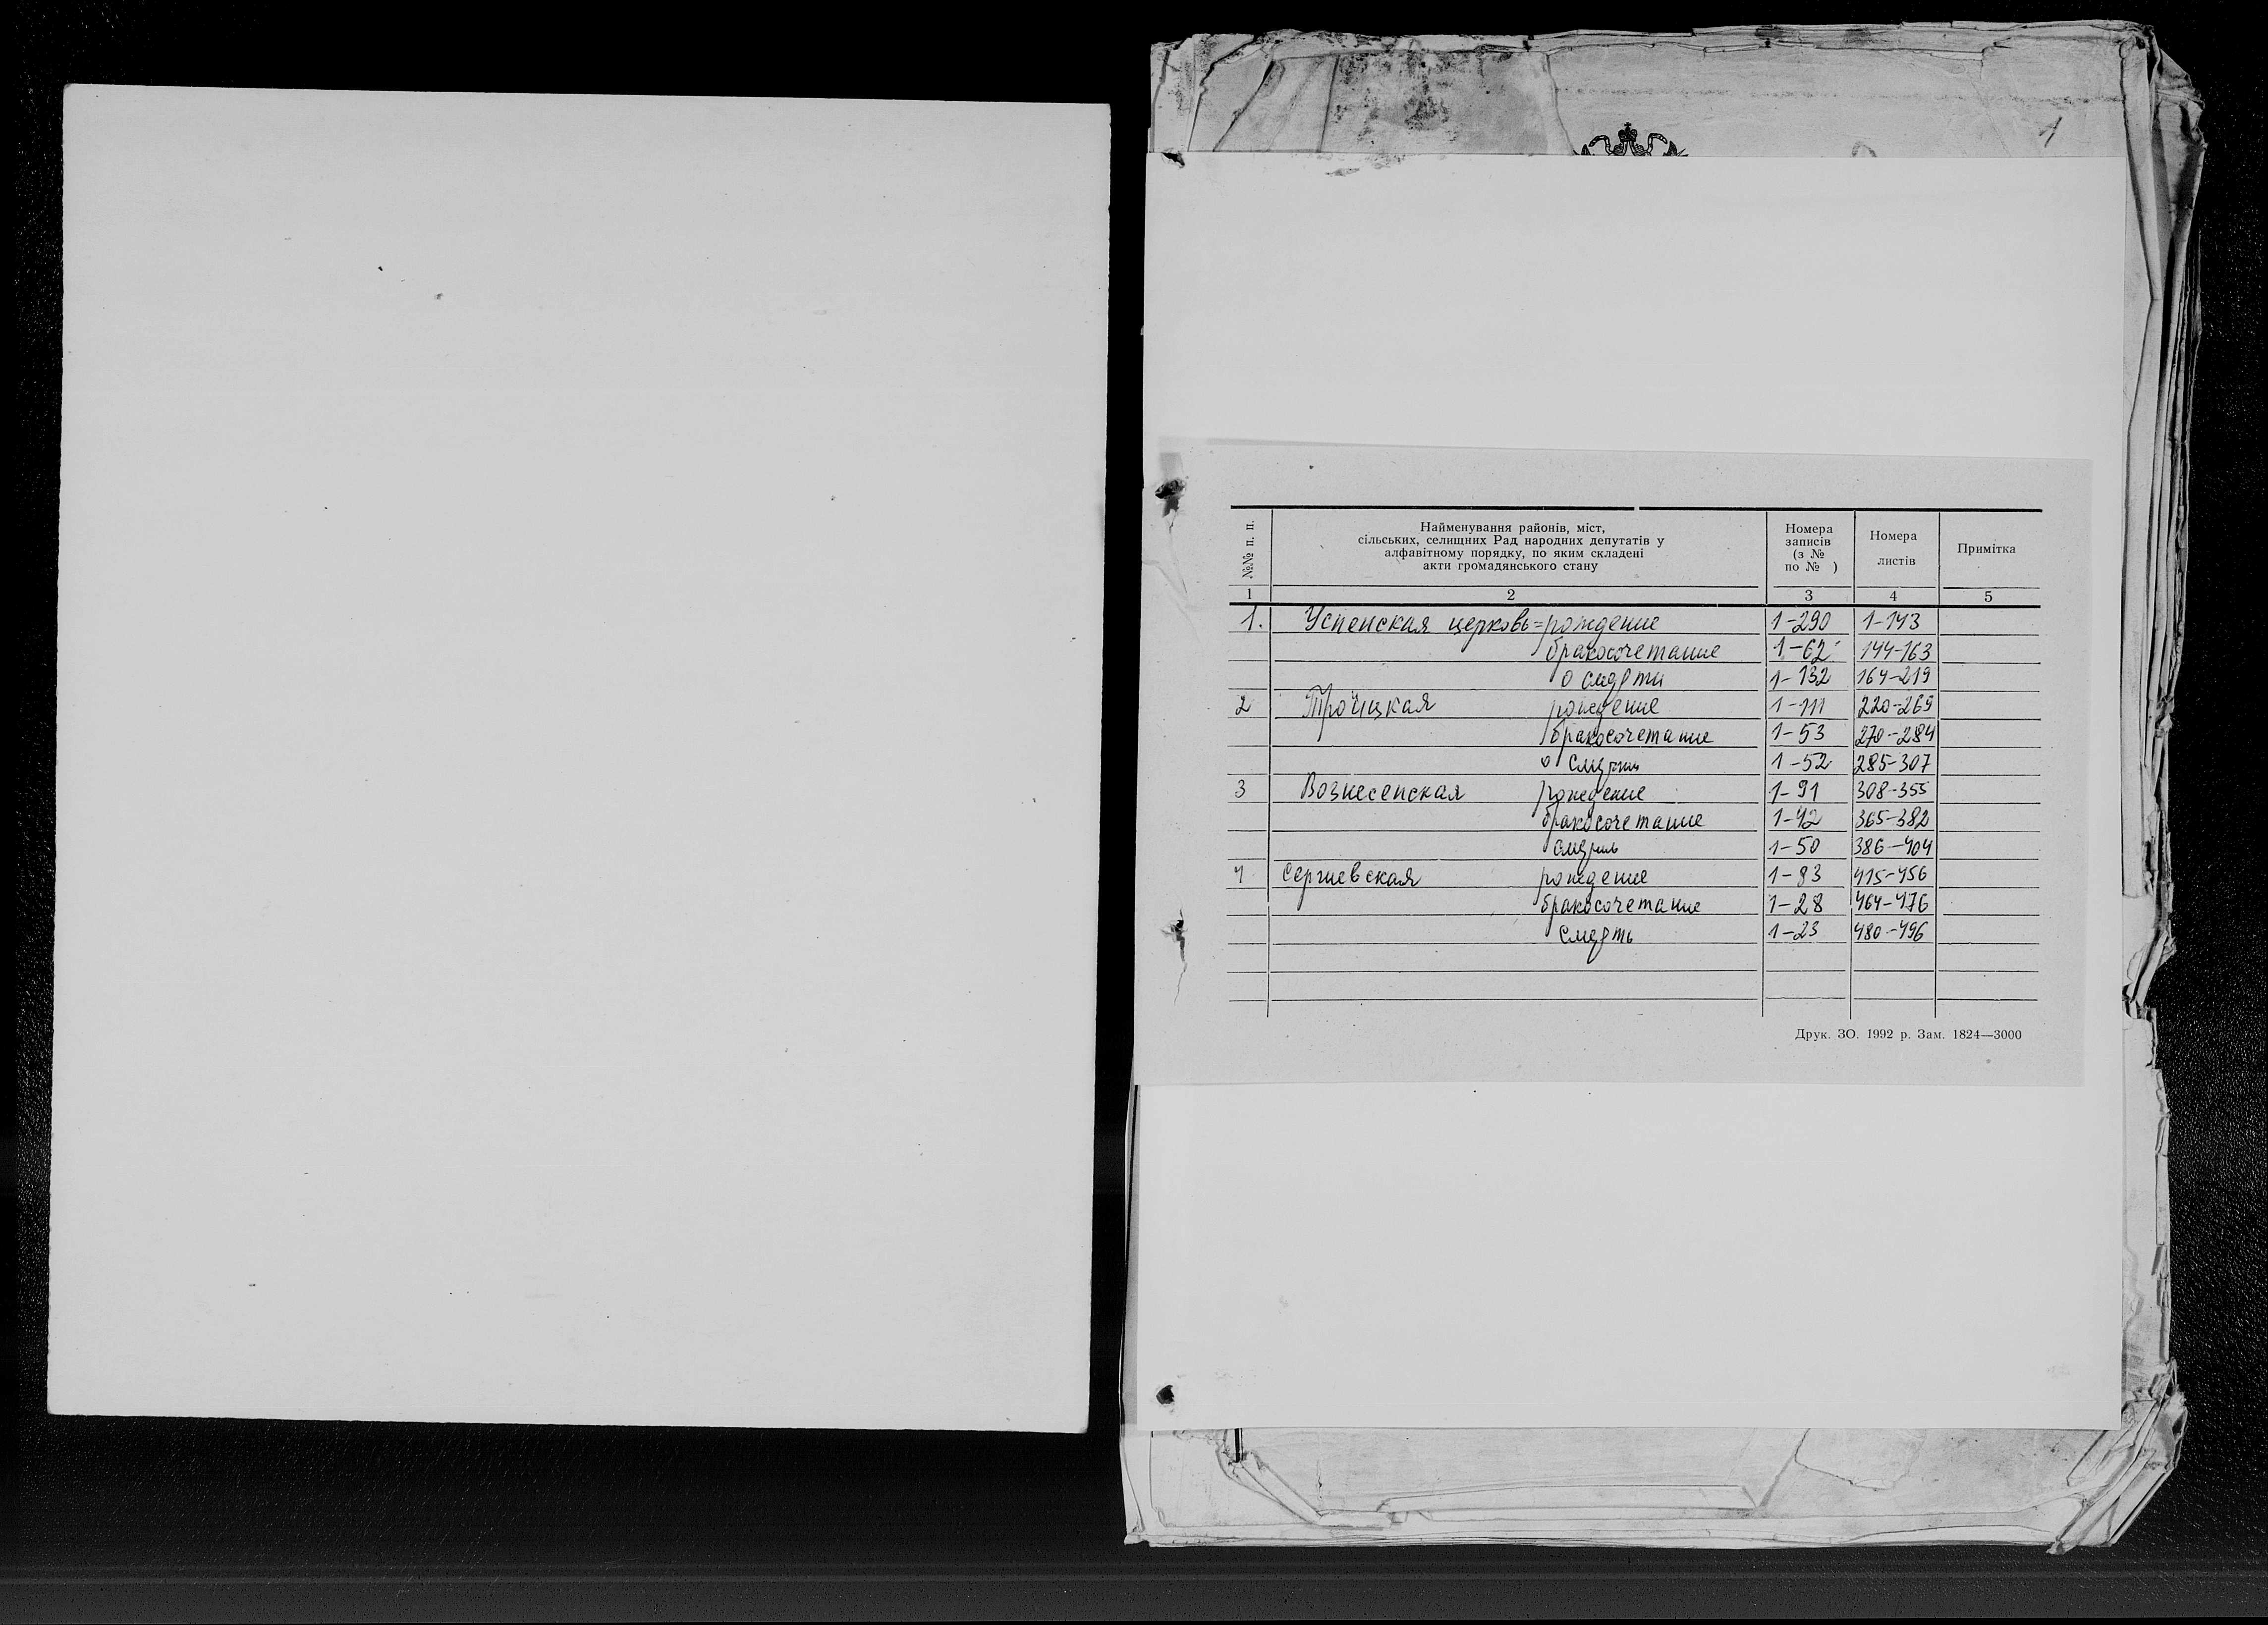 1
№№ п. п.
Найменування районів, міст,
сільських, селищних Рад народних депутатів у
алфавітному порядку, по яким складені
акти громадянського стану
Номера
записів
(з №
по № )
Номера
листів
Примітка
1 2 3 4 5
1. Успенская церковь = рождение 1-290 1-143
бракосочетание 1-62 144-163
о смерти 1-132 164-219
2 Троицкая рождение 1-111 220-269
бракосочетание 1-53 270-284
о смерти 1-52 285-307
3 Вознесенская рождение 1-91 308-355
бракосочетание 1-42 365-382
смерть 1-50 386-404
4 Сергиевская рождение 1-83 415-456
бракосочетание 1-28 464-476
Смерть 1-23 480-496
Друк. ЗО. 1992 р. Зам. 1824—3000